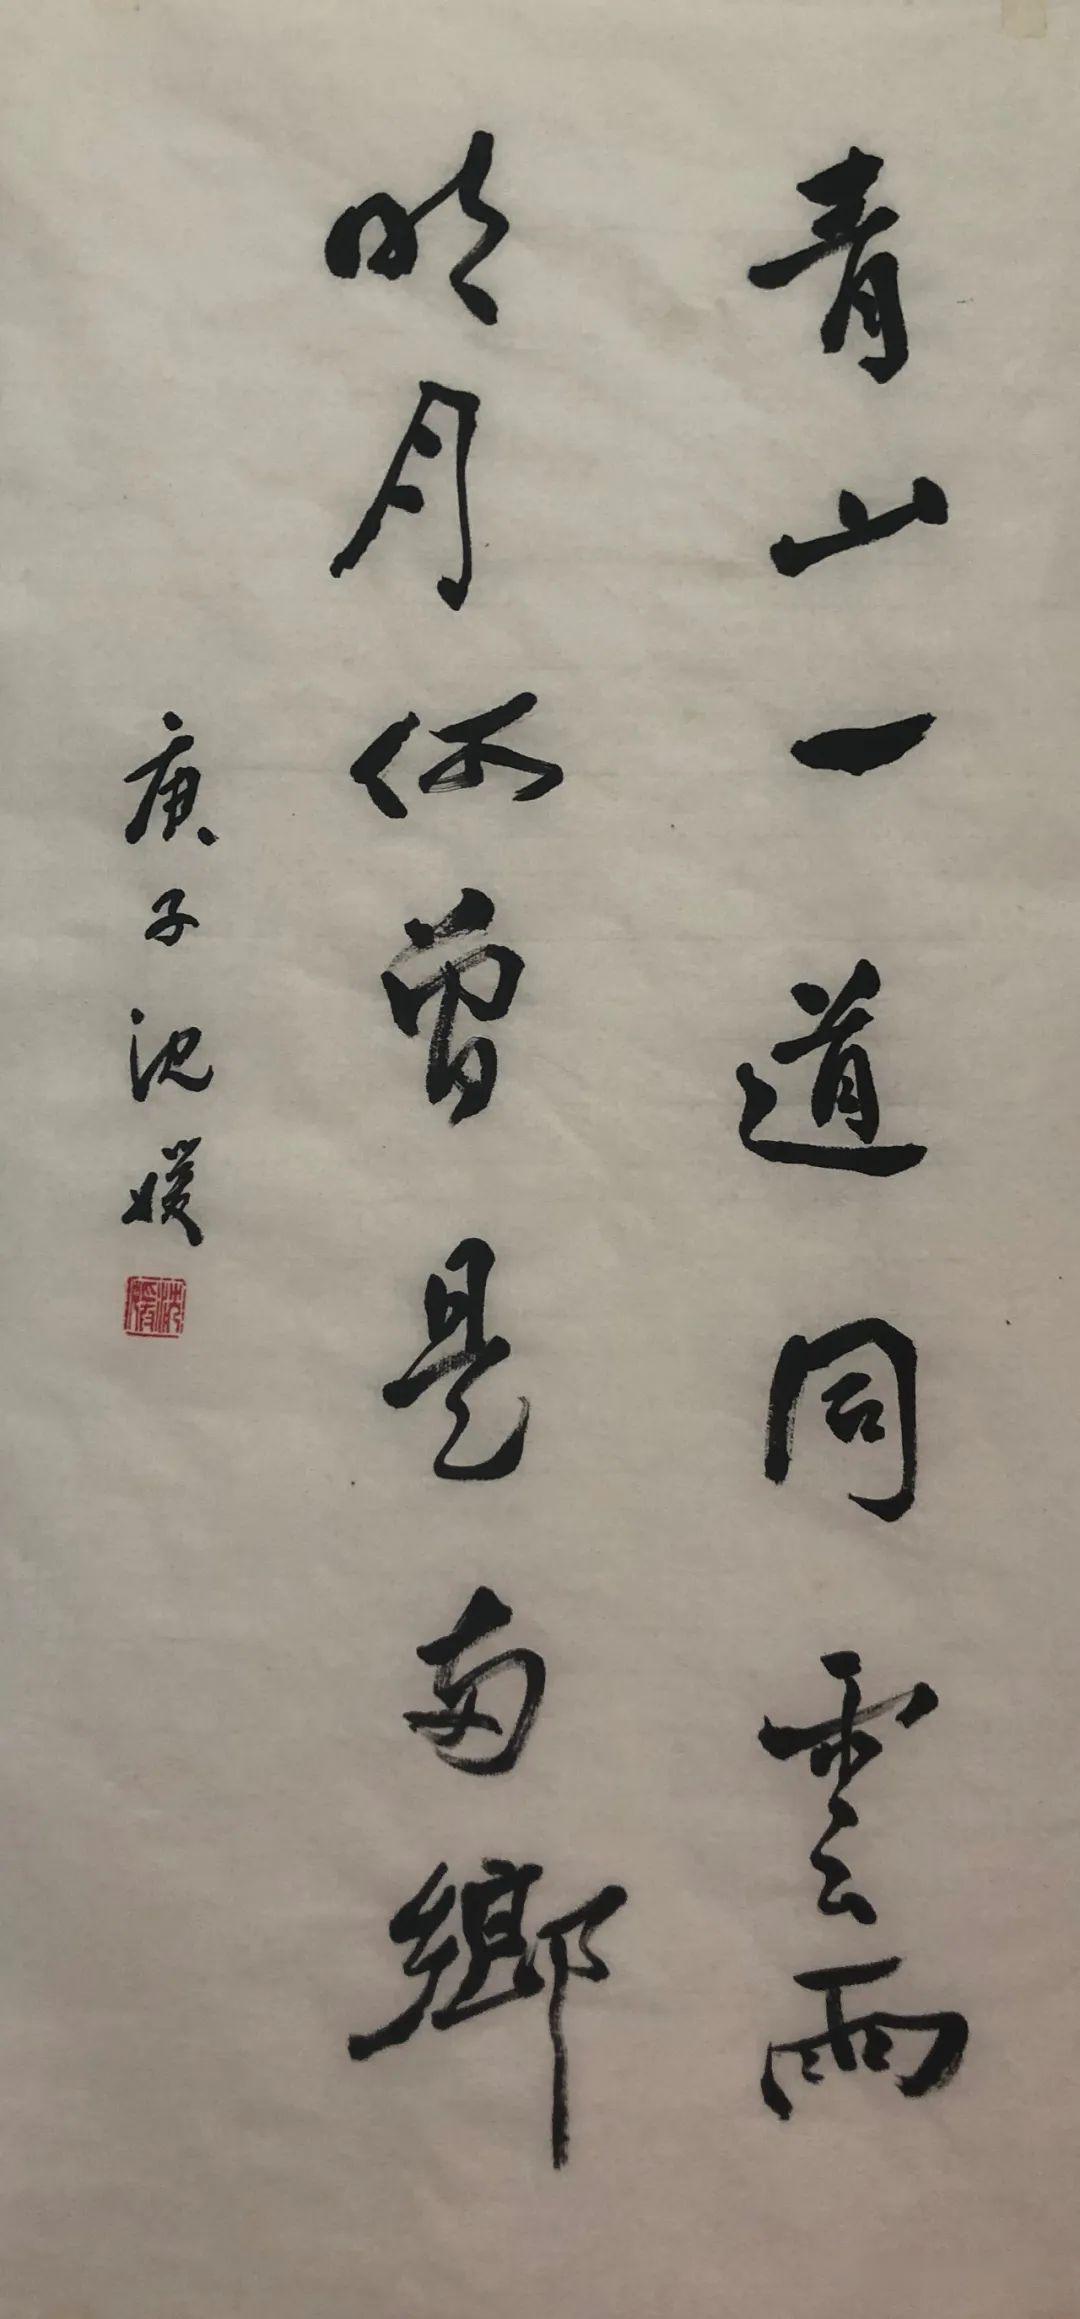 青山一道同雲雨
明月何曾是兩鄉
庚子沈媛